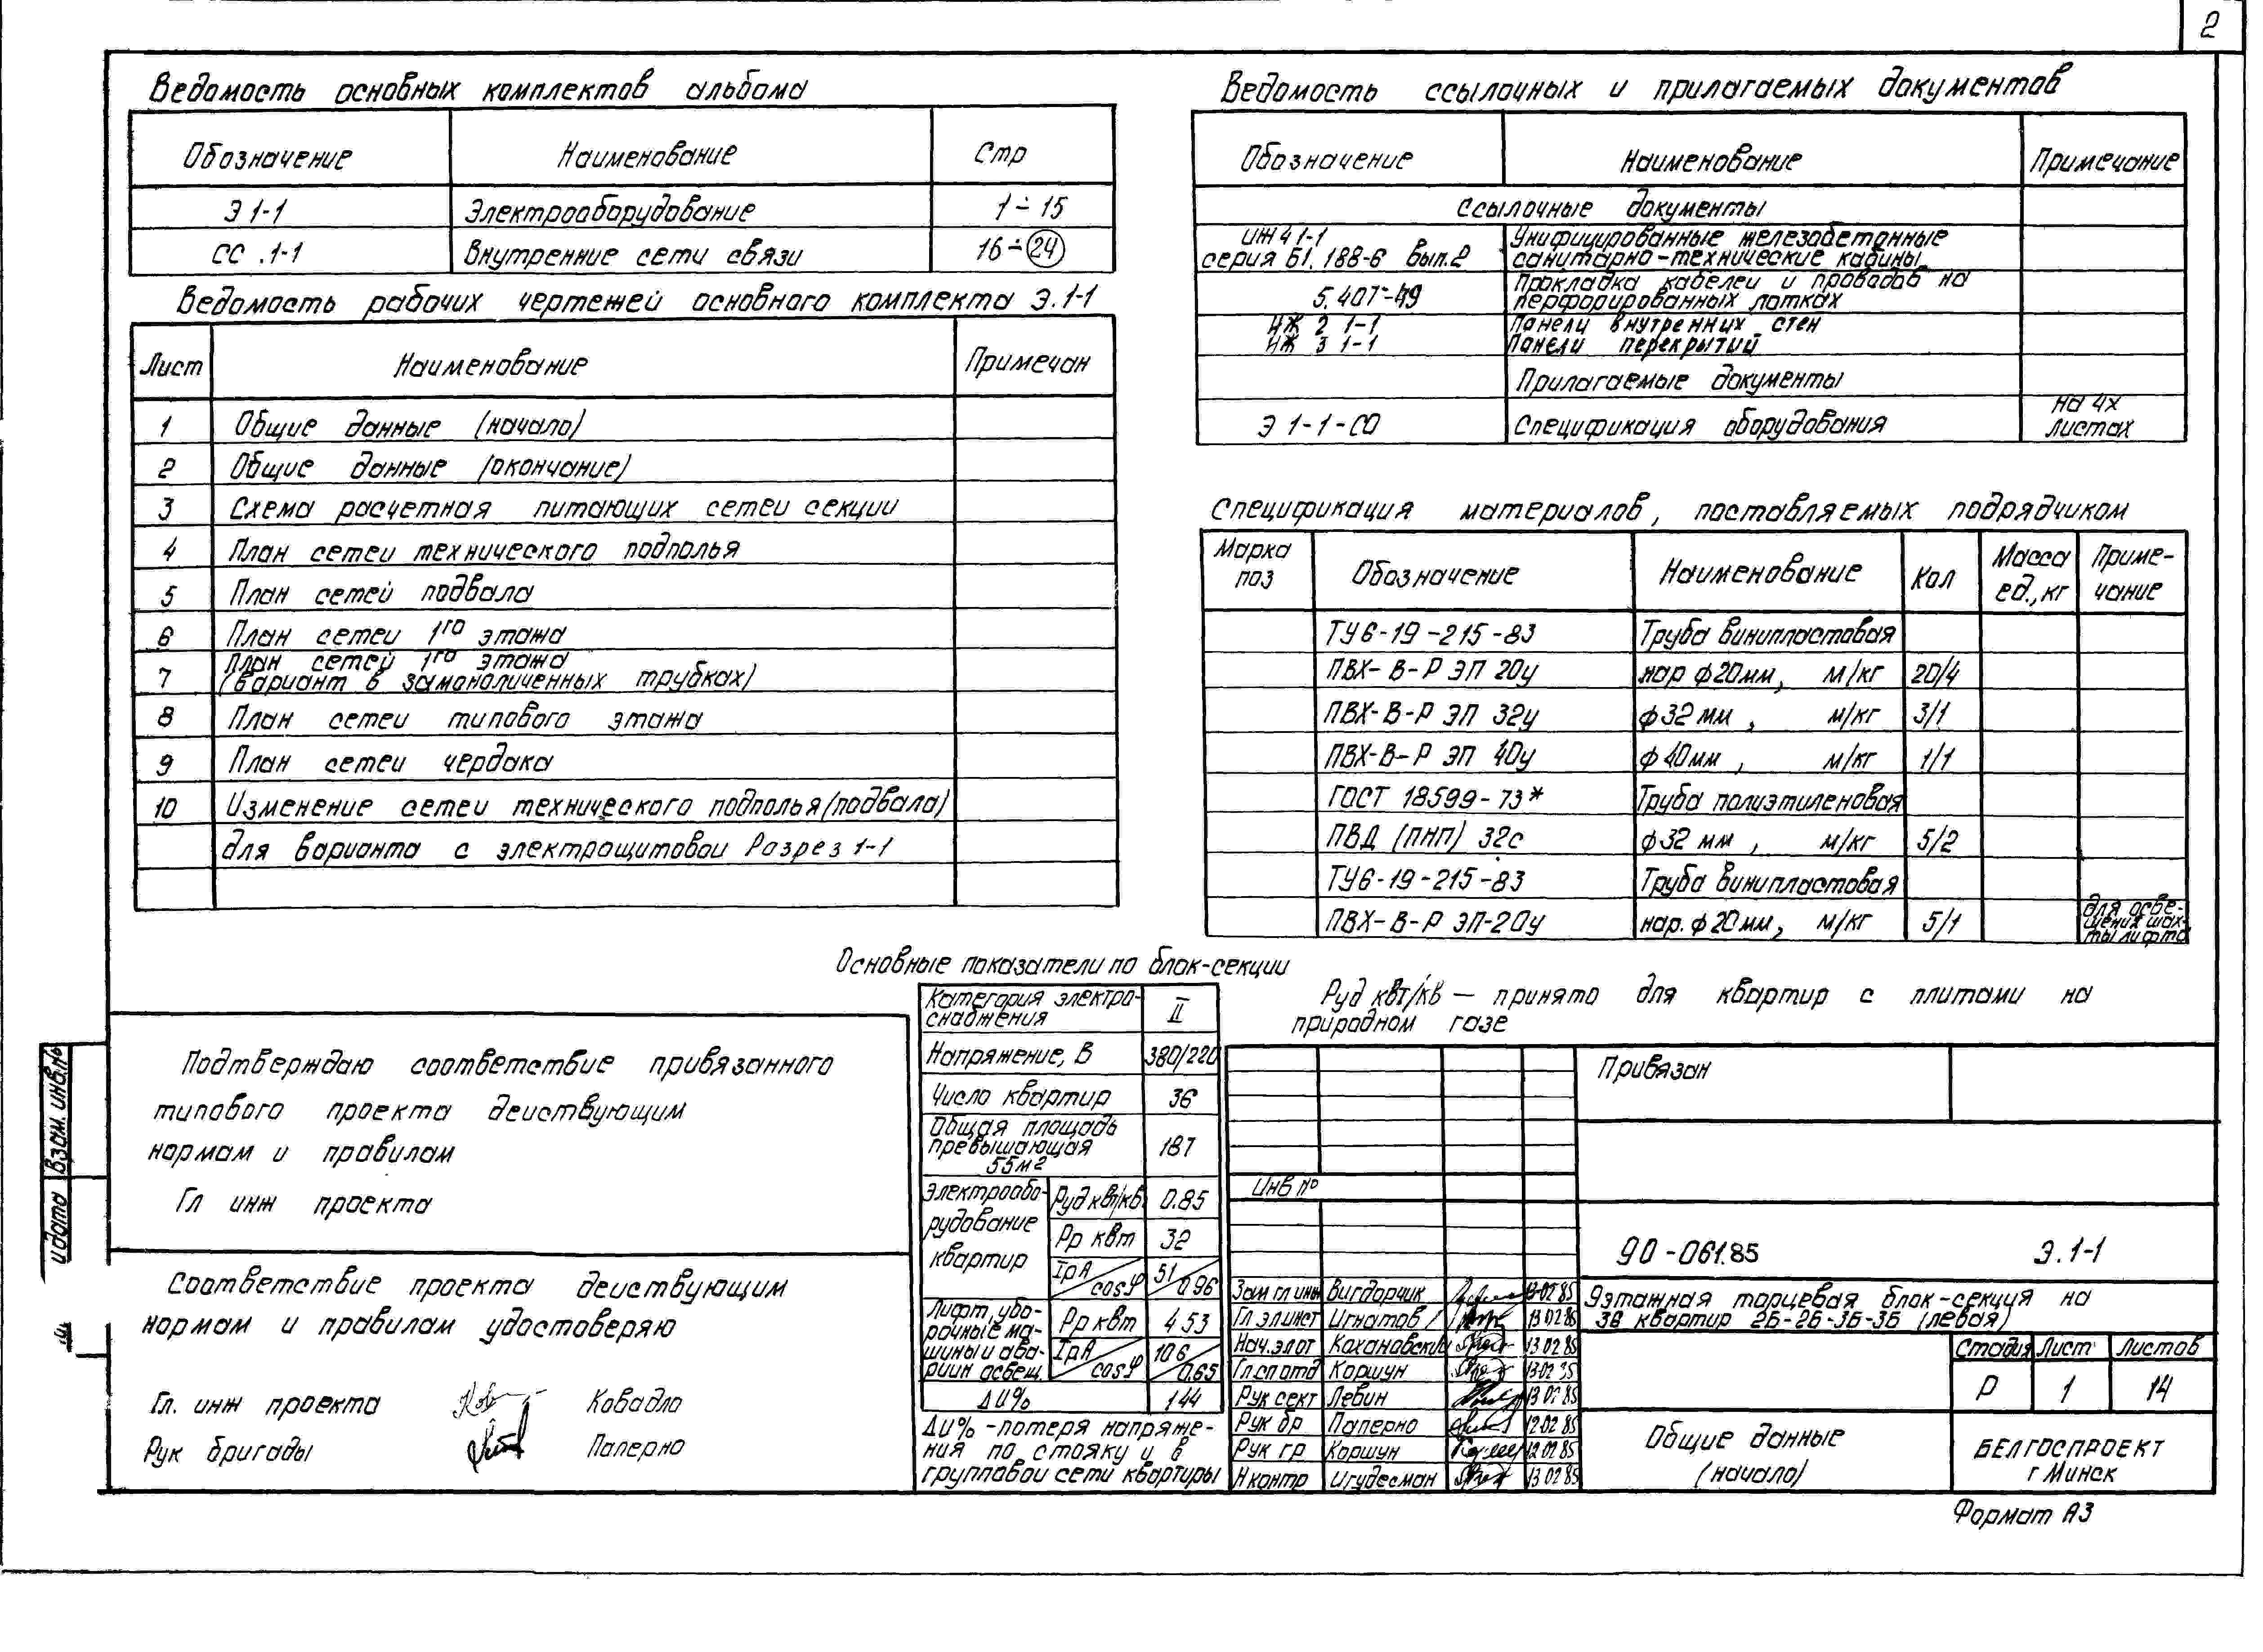 2
Ведомость основных комплектов альбома
Обозначение Наименование Стр
Э 1-1 Электрооборудование 1÷15
СС .1-1 Внутренние сети связи 16÷24
Ведомость рабочих чертежей основного комплекта Э.1-1
Лист Наименование Примечан
1 Общие данные (начало)
2 Общие данные (окончание)
3 Схема расчетная питающих сетей секции
4 План сетей технического подполья
5 План сетей подвала
6 План сетей 1го этажа
План сетей 1го этажа
7 (вариант в замоноличенных трубках)
8 План сетей типового этажа
9 План сетей чердака
10 Изменение сетей технического подполья(подвала)
для варианта с электрощитовой Разрез 1-1
Ведомость ссылочных и прилагаемых документов
Обозначение Наименование Примечание
Ссылочные документы
ИЖ4 1-1 Унифицированные железобетонные
серия Б1.188-6 Вып.2 санитарно-технические кабины
Прокладка кабелей и проводов на
5.407-49 перфорированных лотках
ИЖ 2 1-1 Панели внутренних стен
ИЖ 3 1-1 Панели перекрытий
Прилагаемые документы
Э 1-1-СО Спецификация оборудования на 4х листах
Спецификация материалов, поставляемых подрядчиком
Марка поз Обозначение Наименование Кол Масса ед.,кг Приме-чание
ТУ6-19-215-83 Труба винипластовая
ПВХ-В-Р ЭП 20у нар ф20мм, м/кг 20/4
ПВХ-В-Р ЭП 32у ф32мм, м/кг 3/1
ПВХ-В-Р ЭП 40у ф40мм, м/кг 1/1
ГОСТ 18599-73* Труба полиэтиленовая
ПВД (ПНП) 32с ф32 мм, м/кг 5/2
ТУ6-19-215-83 Труба винипластовая
ПВХ-В-Р ЭП-20у нар.ф20мм, м/кг 5/1 для осве-щения шах-ты лифта
Основные показатели по блок-секции
Категория электро-
снабжения II
Напряжение, В 380/220
Число квартир 36
Общая площадь
превышающая 187
55м2
Электрообо-рудование квартир
Руд квт/кв 0.85
Рр квт 32
IрА/cosφ 51/0.96
Лифт, убо-рочные ма-шины и ава-рийн освещ.
Рр квт 4.53
IрА/cosφ 10.6/0.65
ΔU% 1.44
ΔU% -потеря напряже-
ния по стояку и в
групповой сети квартиры
Руд квт/кв — принято для квартир с плитами на
природном газе
Подтверждаю соответствие привязанного
типового проекта действующим
нормам и правилам
Гл инж проекта
Соответствие проекта действующим
нормам и правилам удостоверяю
Гл. инж проекта Ковадло
Рук бригады Паперно
и дата
Взам. инв.№
Привязан
Инв №
90-061.85 Э.1-1
Зам гл инж Вигдорчик 13.02.85
Гл элинст Игнатов 13.02.85
Нач.элот Кохановский 13.02.85
Гл.сп отд Коршун 13.02.85
Рук сект Левин 13.02.85
Рук бр Паперно 12.02.85
Рук гр Коршун 12.02.85
Н контр Игудесман 13.02.85
9этажная торцевая блок-секция на
36 квартир 2Б-2Б-3Б-3Б (левая)
Стадия Лист Листов
Р 1 14
Общие данные
(начало)
БЕЛГОСПРОЕКТ
г Минск
Формат А3